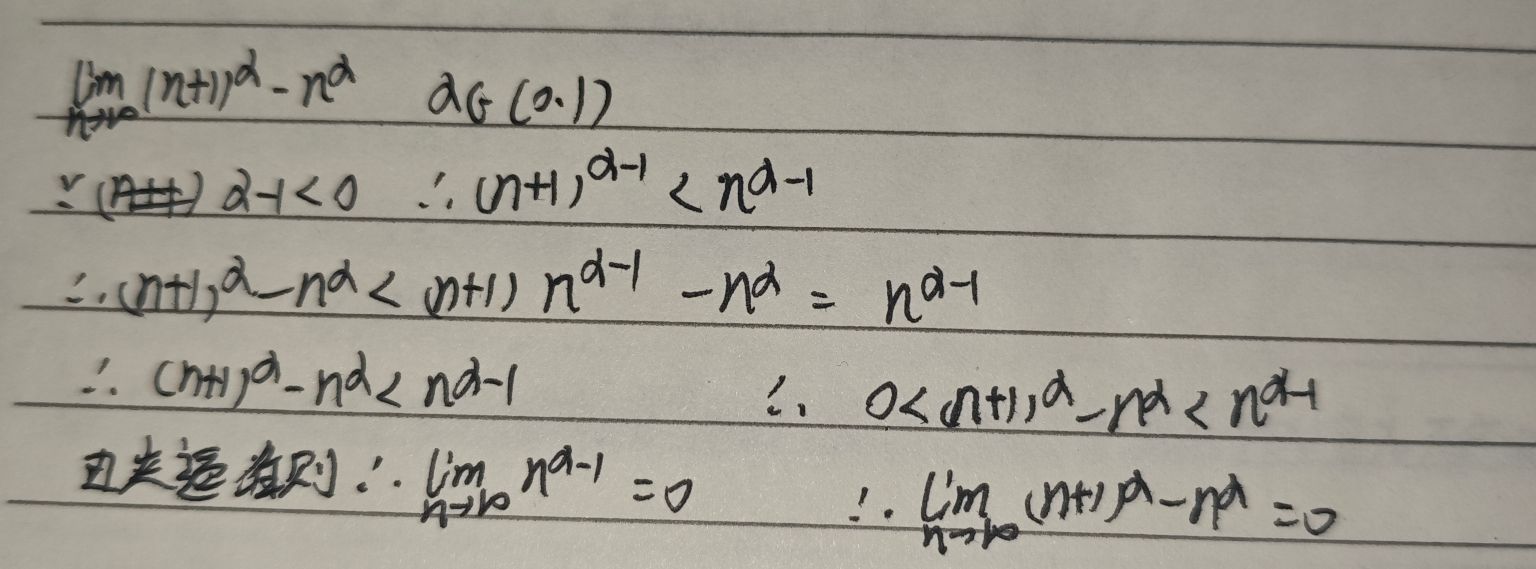 lim n→∞ (n+1)^α - n^α α∈(0.1)
∵ α-1<0 ∴ (n+1)^α-1 < n^α-1
∴ (n+1)^α - n^α < (n+1) n^α-1 - n^α = n^α-1
∴ (n+1)^α - n^α < n^α-1 ∴ 0<(n+1)^α - n^α < n^α-1
由夹逼准则 ∴ lim n→∞ n^α-1 = 0 ∴ lim n→∞ (n+1)^α - n^α = 0